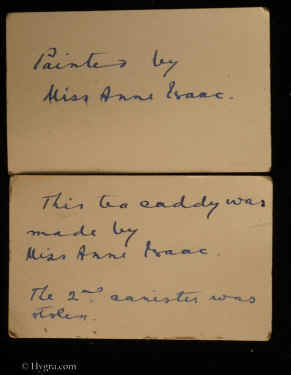 Painted by
Miss Anne Isaac.
This tea caddy was
made by
Miss Anne Isaac.
The 2nd. canister was
stolen.
© Hygra.com